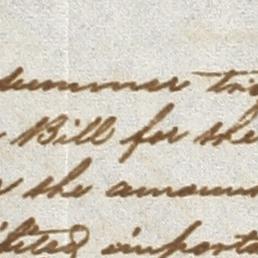 summer tri
Bill for the
the amoun
importa